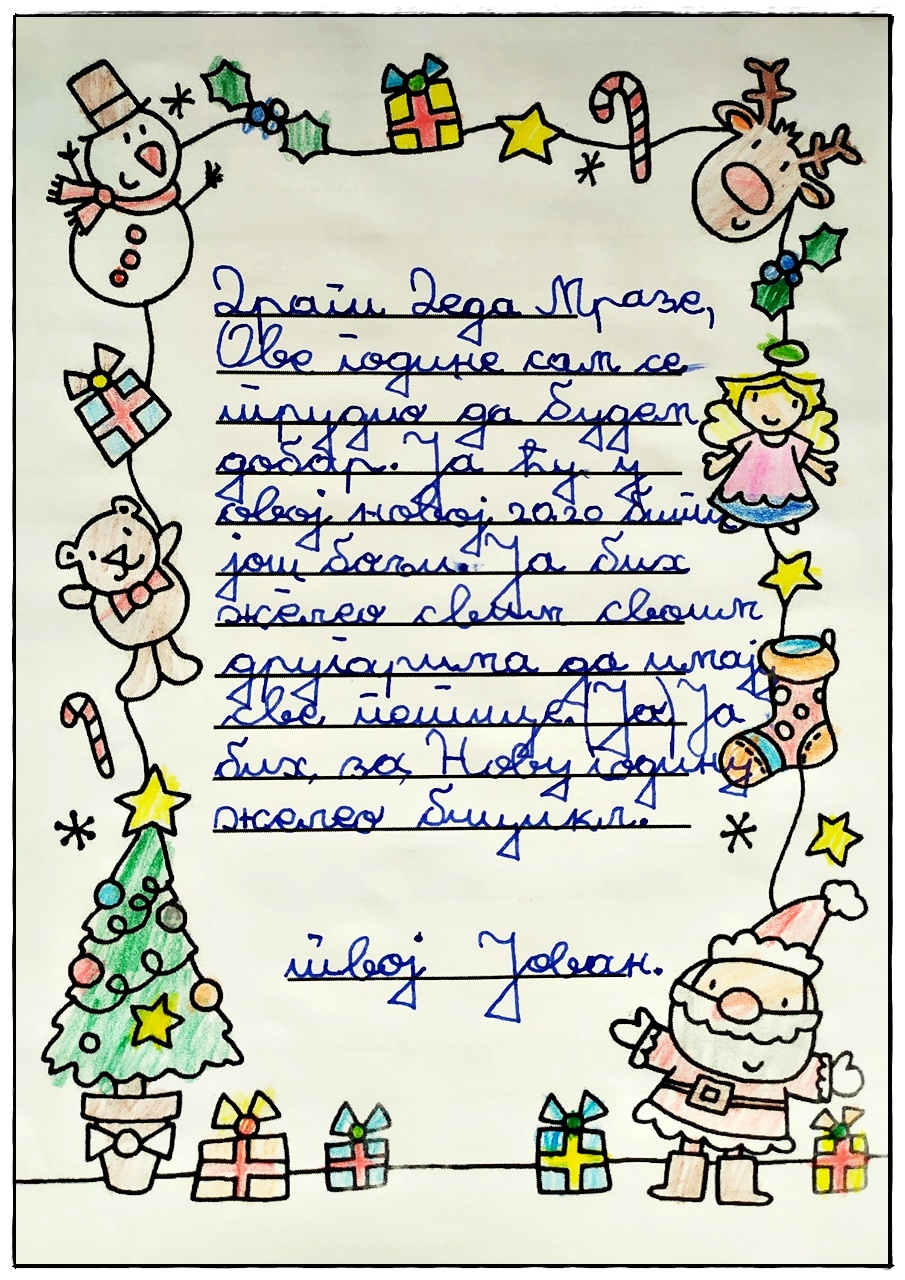 Драги Деда Мразе,
Ове године сам се
трудио да будем
добар. Ја ћу у
овој новој 2020 бити
још бољи. Ја бих
желео свим својим
другарима да имају
све петице. (Ја) Ја
бих, за, Нову годину
желео бицикл.
твој Јован.